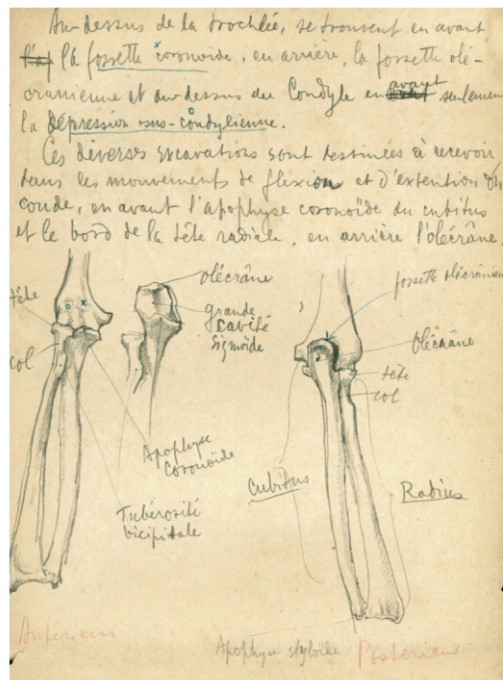 Au-dessus de la trochlée, se trouvent en avant
la fossette coronoïde, en arrière, la fossette olé-
cranienne et au-dessus du Condyle en avant seulement
la dépression sus-condylienne.
Ces diverses excavations sont destinées à recevoir
dans les mouvements de flexion et d'extention du
coude, en avant l'apophyse coronoïde du cubitus
et le bord de la tête radiale, en arrière l'olécrâne.
olécrâne
fossette olécranienne
tête
grande
cavité
sigmoïde
olécrâne
col
tête
col
Apophyse
coronoïde
Cubitus
Radius
Tubérosité
bicipitale
Antérieur
Apophyse styloïde
Postérieur